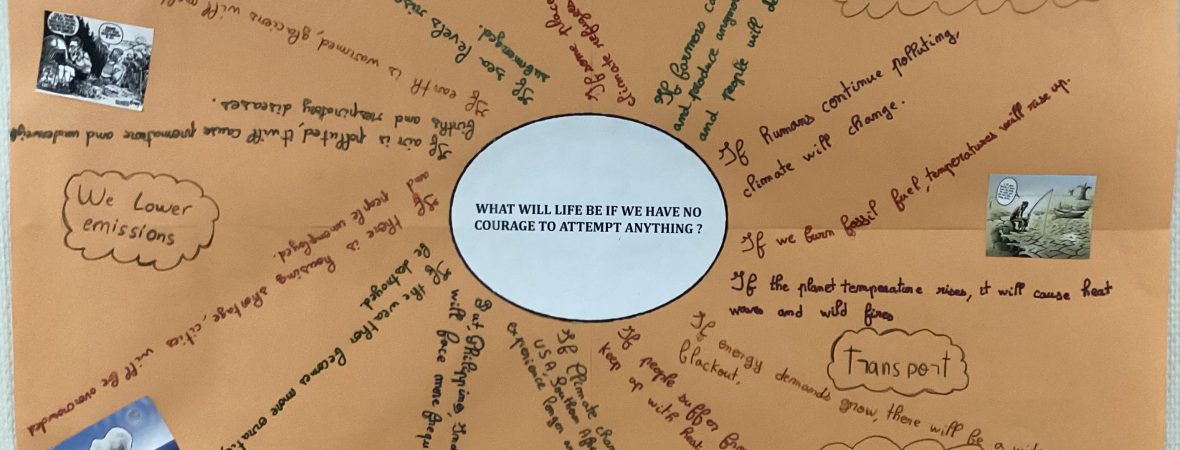 WHAT WILL LIFE BE IF WE HAVE NO
COURAGE TO ATTEMPT ANYTHING ?
If farmers
and produce
and people will
If humans continue polluting,
climate will change.
If we burn fossil fuel, temperatures will rise up.
If the planet temperature rises, it will cause heat
waves and wild fires
Transport
If energy demands grow, there will be a
blackout.
If people suffer from
keep up with heat
If Climate
USA, Southern
experience longer
But, Philippine,
will face more
If the weather becomes more
be destroyed.
If there is housing shortage, cities will be overcrowded
and people unemployed.
We Lower
emissions
If air is polluted, it will cause premature and underweight
births and respiratory diseases.
If earth is warmed, glaciers will
If sea levels rise
submerged.
If some
climate refugees